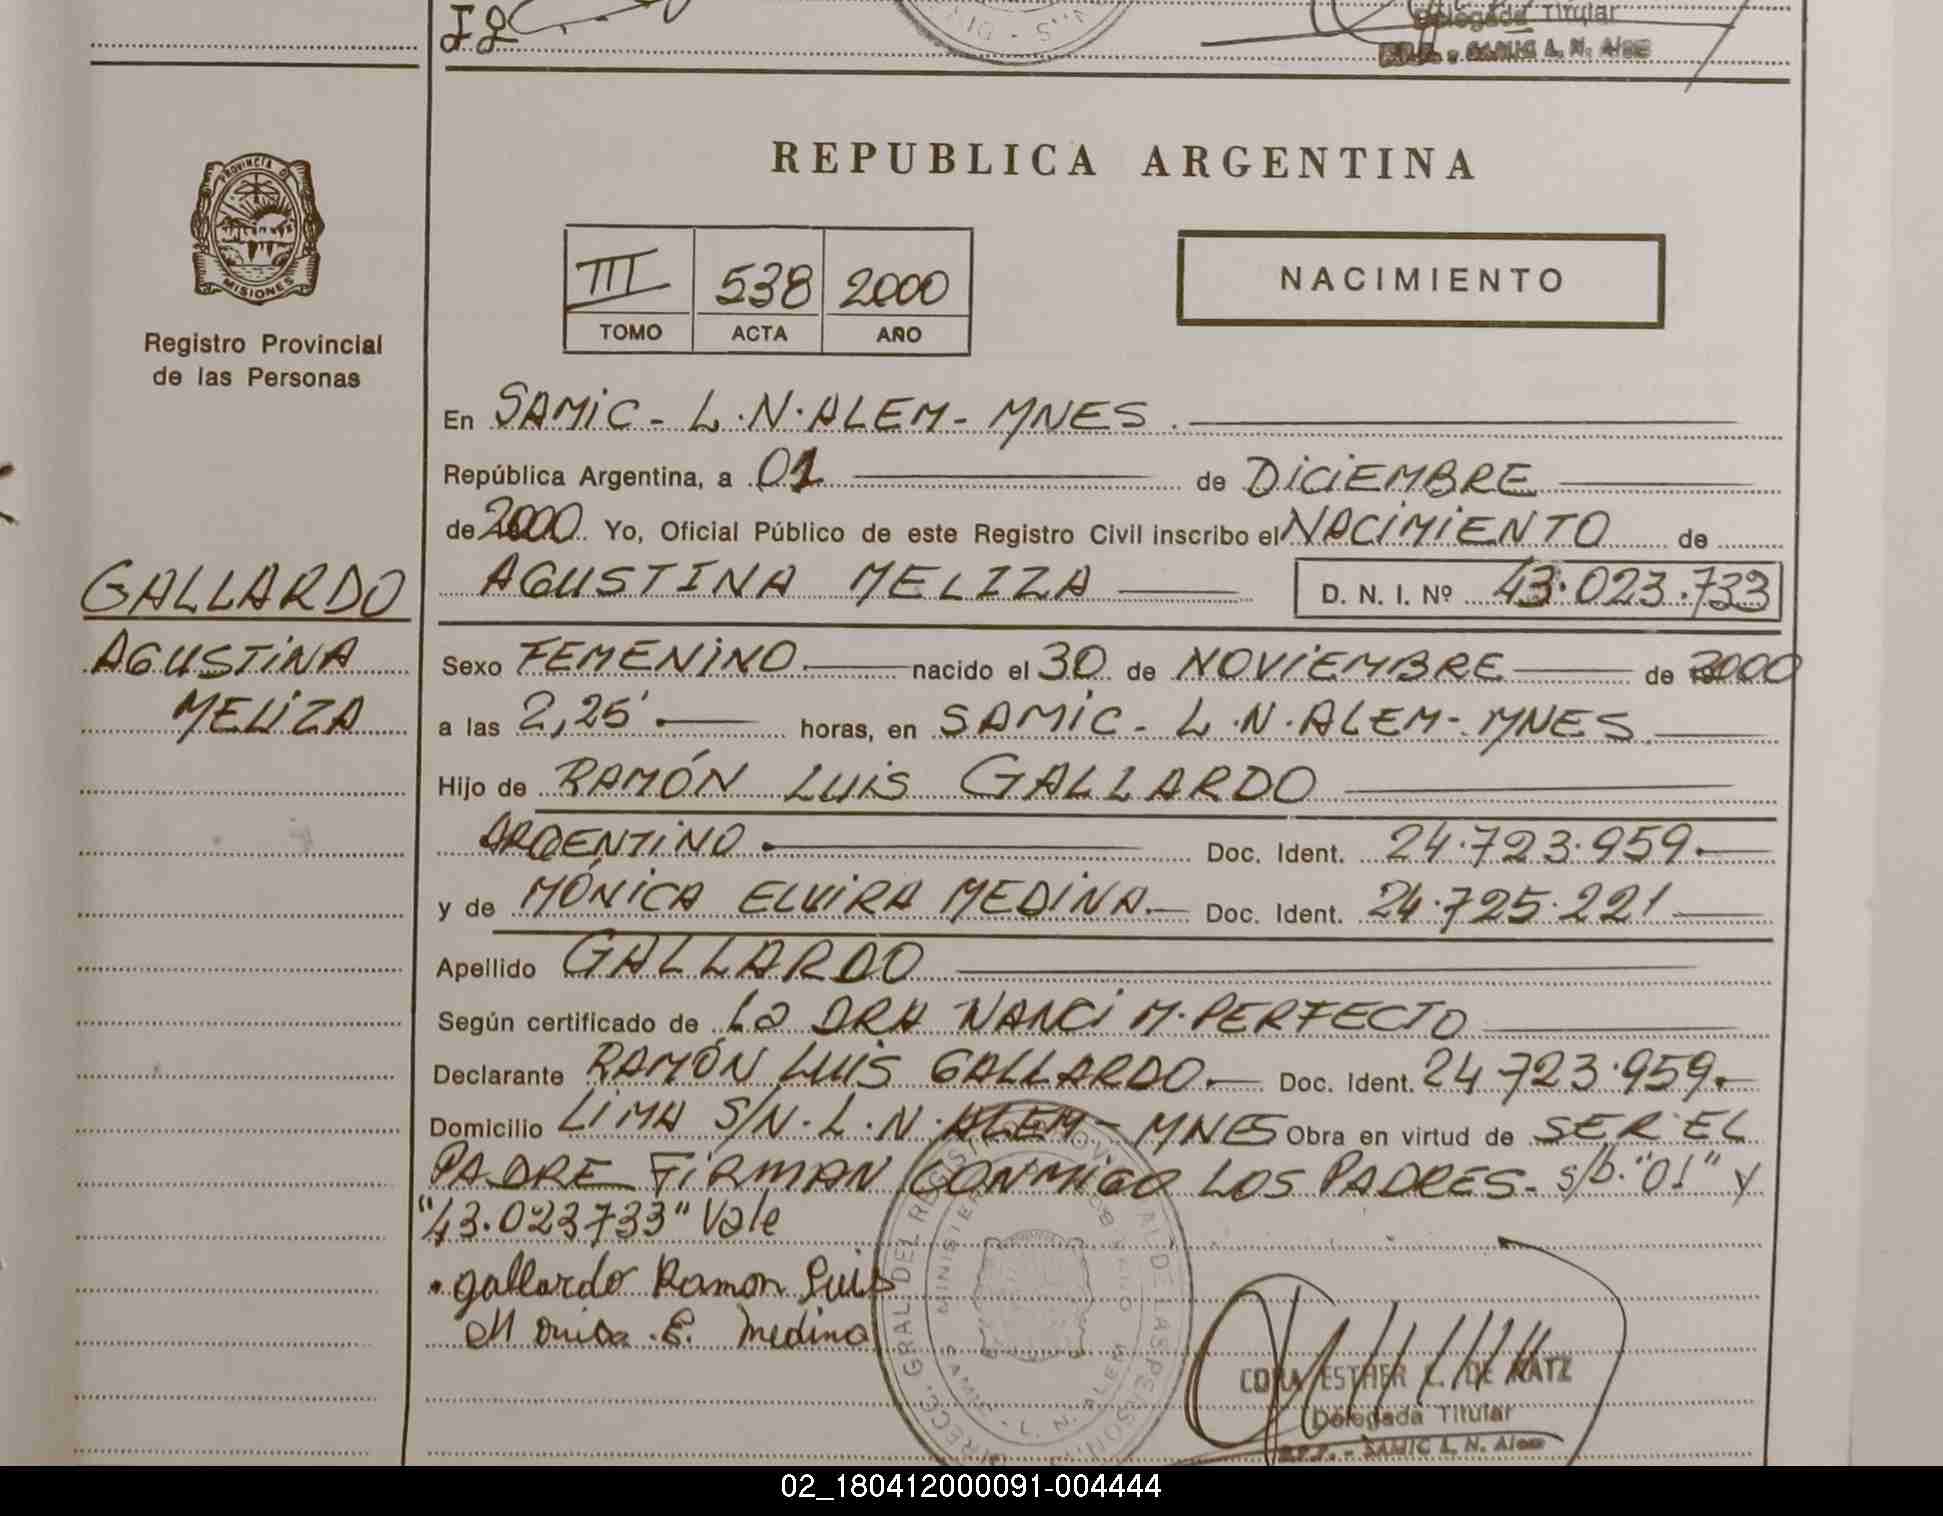 Delegada Titular
SAMIC L. N. Alem
REPUBLICA ARGENTINA
PROVINCIA DE
MISIONES
Registro Provincial
de las Personas
III 538 2000
TOMO ACTA AÑO
NACIMIENTO
En SAMIC - L.N. ALEM - MNES.
República Argentina, a 01 de DICIEMBRE
de 2000 Yo, Oficial Público de este Registro Civil inscribo el NACIMIENTO de
AGUSTINA MELIZA D. N. I. Nº 43.023.733
GALLARDO
AGUSTINA
MELIZA
Sexo FEMENINO. nacido el 30 de NOVIEMBRE de 2000
a las 2,25'. horas, en SAMIC - L.N. ALEM - MNES
Hijo de RAMÓN LUIS GALLARDO
ARGENTINO. Doc. Ident. 24.723.959.
y de MÓNICA ELVIRA MEDINA. Doc. Ident. 24.725.221
Apellido GALLARDO
Según certificado de La DRA NANCI M. PERFECTO
Declarante RAMÓN LUIS GALLARDO. Doc. Ident. 24.723.959.
Domicilio LIMA S/N. L.N. ALEM - MNES Obra en virtud de SER EL
PADRE FIRMAN CONMIGO LOS PADRES. s/b. "01" y
"43.023733" Vale
gallardo Ramon Luis
Monica E. Medina
CORA ESTHER C. DE KATZ
Delegada Titular
R.P.P. - SAMIC L. N. Alem
02_180412000091-004444